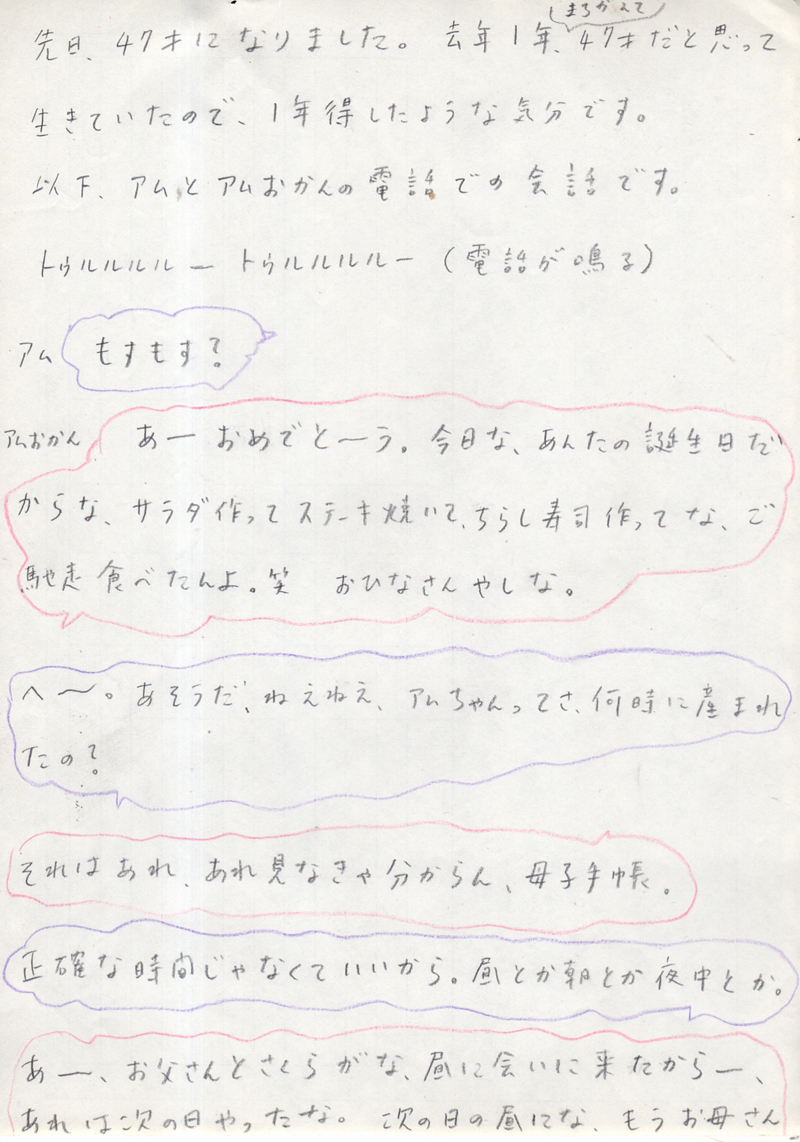 先日、47才になりました。去年1年、まちがえて47才だと思って
生きていたので、1年得したような気分です。
以下、アムとアムおかんの電話での会話です。
トゥルルルルー トゥルルルルー (電話が鳴る)
アム もすもす?
アムおかん あーおめでとーう。今日な、あんたの誕生日だ
からな、サラダ作ってステーキ焼いて、ちらし寿司作ってな、ご
馳走食べたんよ。笑 おひなさんやしな。
へ〜。あそうだ、ねえねえ、アムちゃんってさ、何時に産まれ
たの?
それはあれ、あれ見なきゃ分からん、母子手帳。
正確な時間じゃなくていいから。昼とか朝とか夜中とか。
あー、お父さんとさくらがな、昼に会いに来たからー、
あれは次の日やったな。次の日の昼にな、もうお母さん